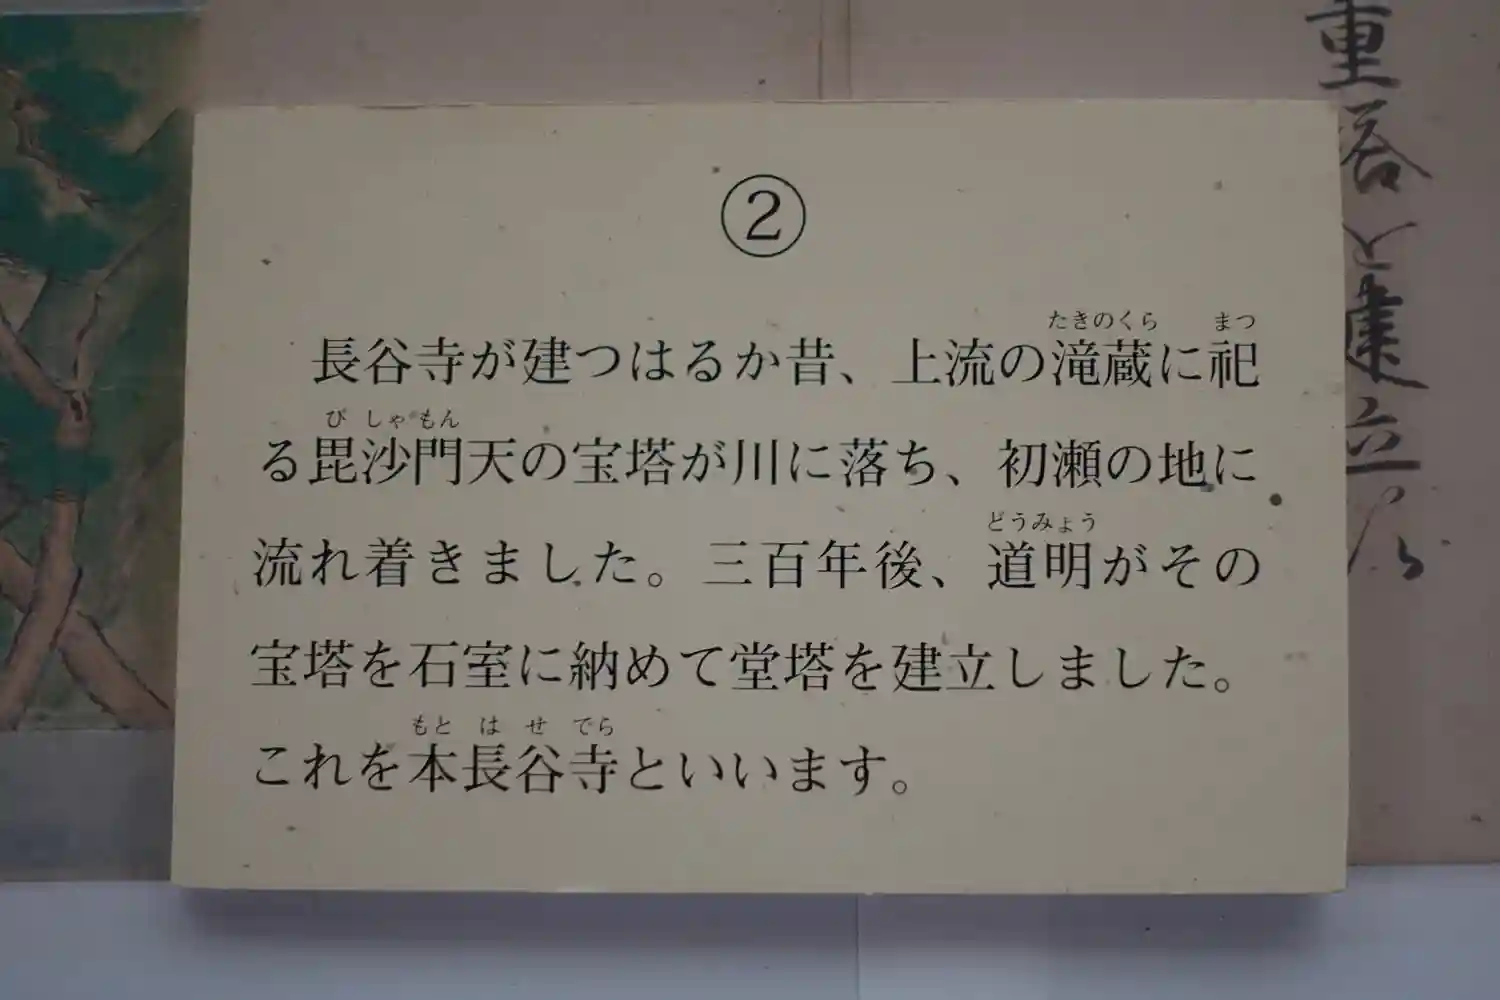 ②
たきのくら まつ
長谷寺が建つはるか昔、上流の滝蔵に祀
びしゃもん
る毘沙門天の宝塔が川に落ち、初瀬の地に
どうみょう
流れ着きました。三百年後、道明がその
宝塔を石室に納めて堂塔を建立しました。
もと は せ でら
これを本長谷寺といいます。
重塔を建立